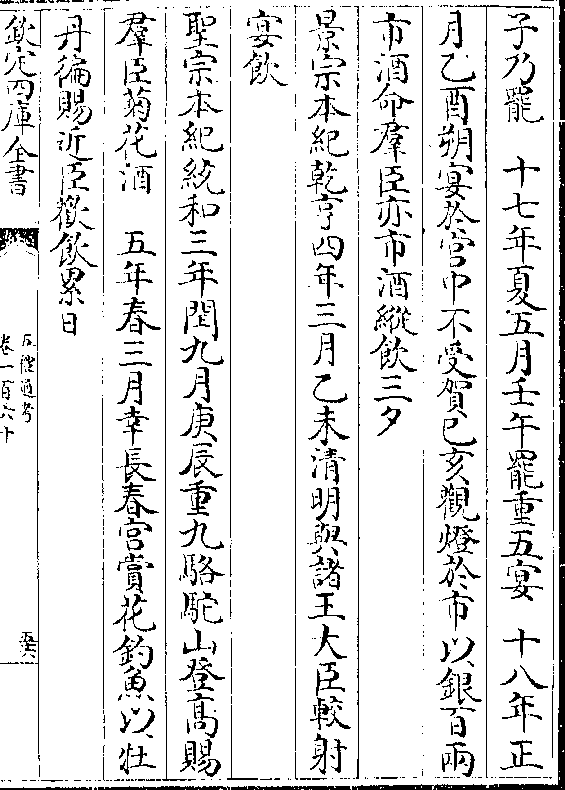 子乃罷　十七年夏五月壬午罷重五宴　十八年正
月乙酉朔宴於宫中不受賀己亥觀燈於市以銀百兩
市酒命羣臣亦市酒縱飲三夕
景宗本紀乾亨四年三月乙未清明與諸王大臣較射
宴飲
聖宗本紀統和三年閏九月庚辰重九駱駝山登高賜
羣臣菊花酒　五年春三月幸長春宫賞花釣魚以牡
丹徧賜近臣歡飲累日
欽定四庫全書
五禮通考
卷一百六十